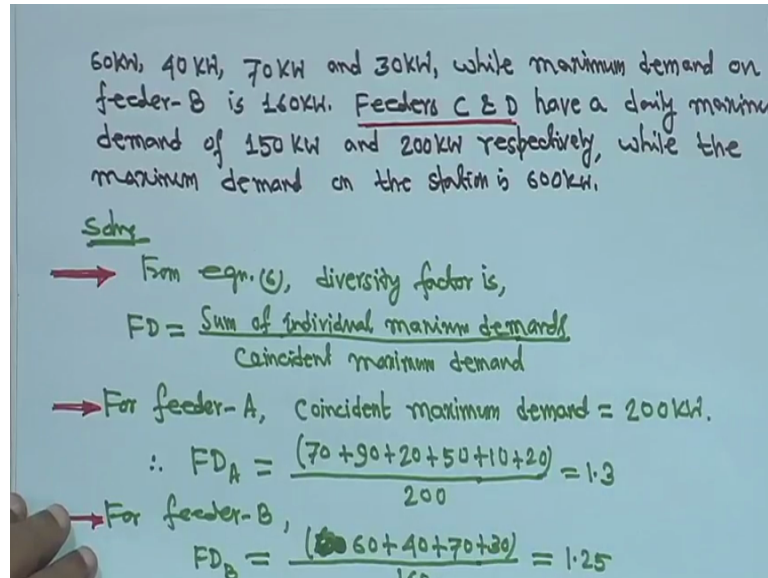 60KW, 40 KW, 70KW and 30KW, while maximum demand on
feeder-B is 160KW. Feeders C & D have a daily maximu
demand of 150 KW and 200KW respectively, while the
maximum demand on the station is 600KW.
Soln.
From eqn.(6), diversity factor is,
FD = Sum of individual maximum demands
Coincident maximum demand
For feeder-A, Coincident maximum demand = 200KW.
∴ FDA = (70+90+20+50+10+20) = 1.3
200
For feeder-B,
FDB = (60+40+70+30) = 1.25
160